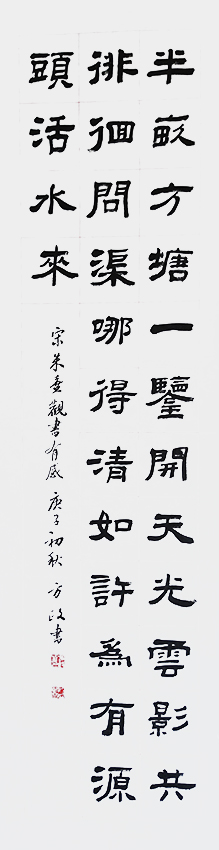 半畝方塘一鑒開天光雲影共
徘徊問渠哪得清如許為有源
頭活水來
宋朱熹觀書有感 庚子初秋 方政書